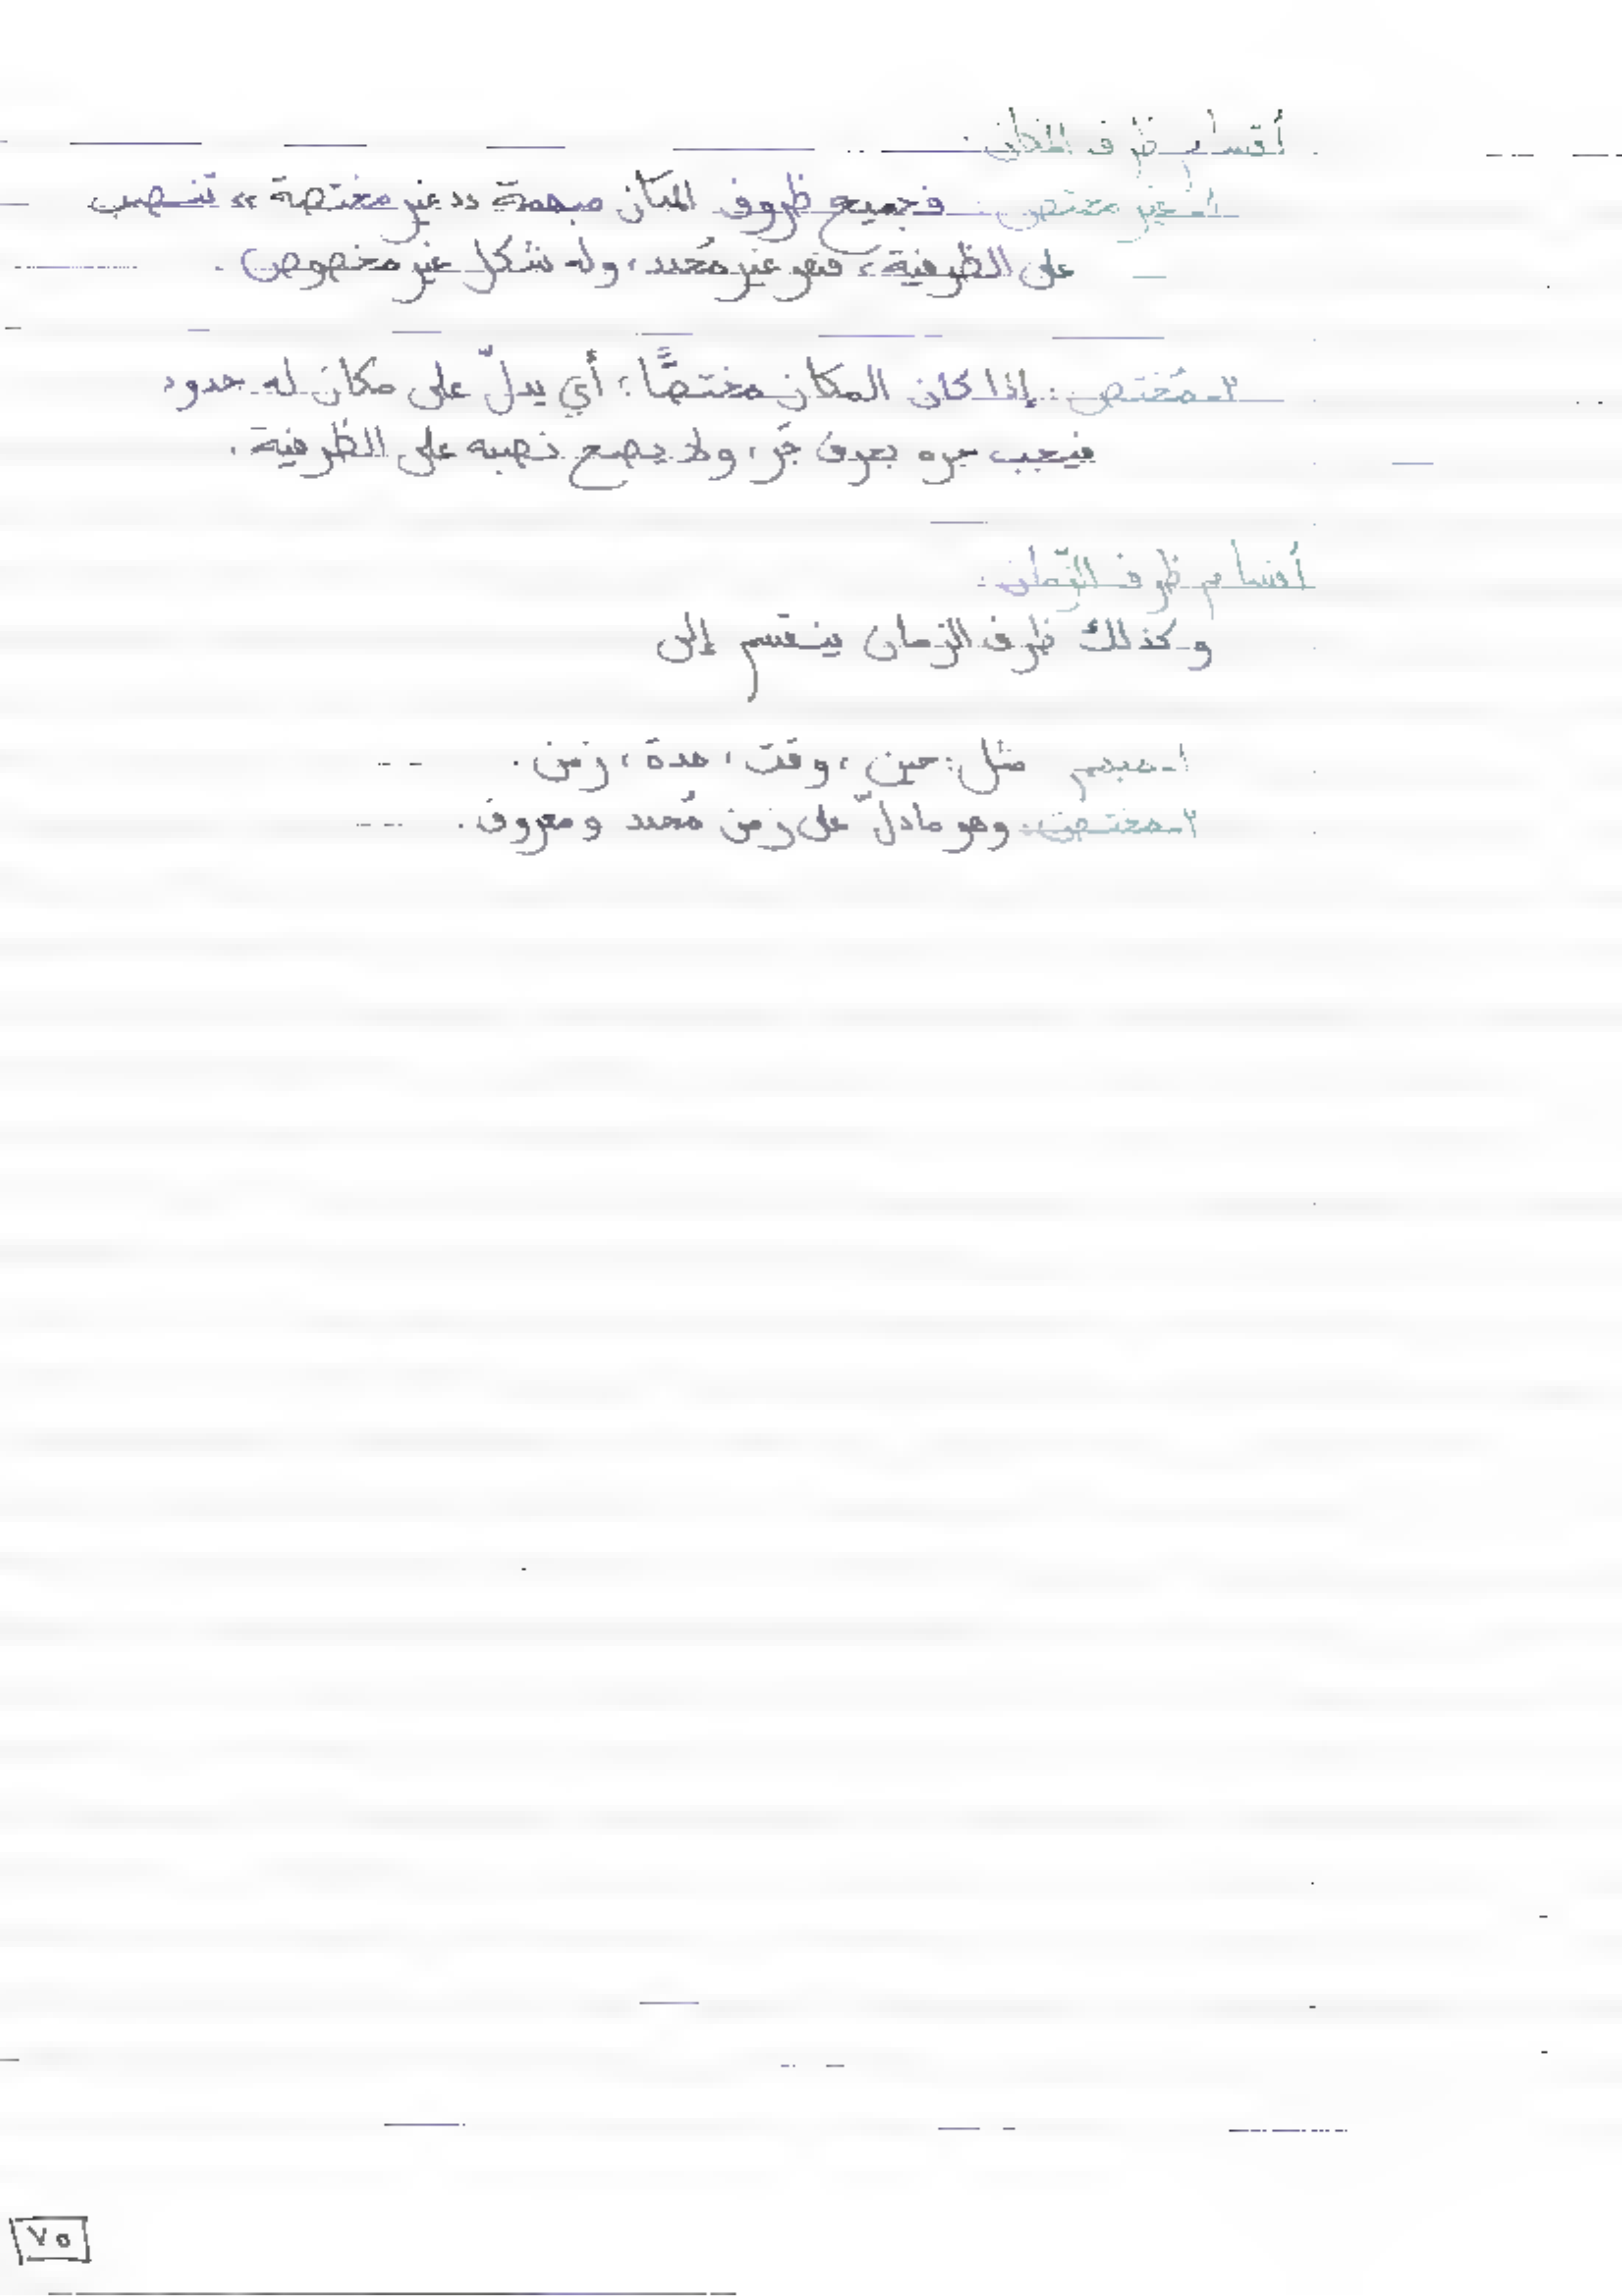 أقسام ظرف المكان :
١- غير مختص : فجميع ظروف المكان مبهمة "غير مختصة" تنصب
على الظرفية، فهو غير مُحدد، وله شكل غير مخصوص .
٢- مُختص : إذا كان المكان مختصًّا؛ أي يدلّ على مكان له حدود
فيجب جره بحرف جَر، ولا يصح نصبه على الظَّرفية .
أقسام ظرف الزَّمان :
وكذلك ظرف الزمان ينقسم إلى
١- مبهم مثل : حين ، وقت ، مدة ، زمن .
٢- مختص : وهو ما دلّ على زمن مُحدد ومعروف .
٧٥